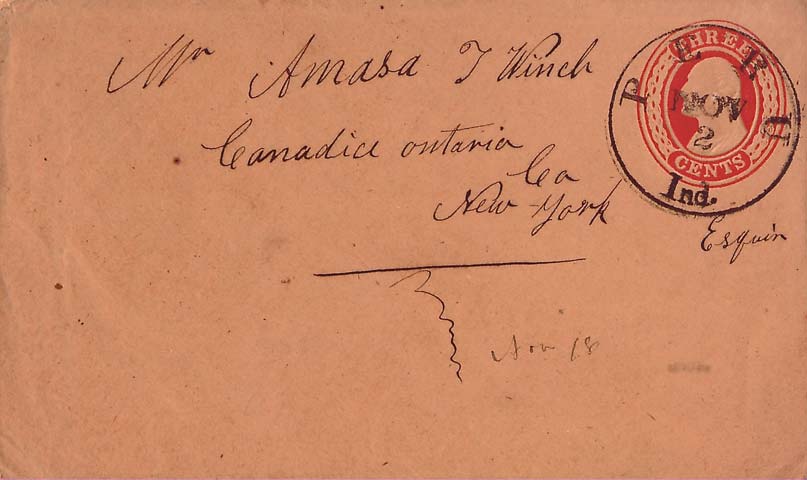 Mr Amasa T Winch
Canadice ontario
Co
New York
Esquir
THREE
CENTS
PERU
NOV
2
Ind.
Nov 18